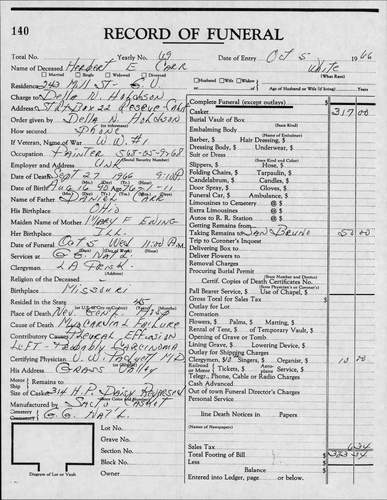 140
RECORD OF FUNERAL
Total No. Yearly No. 69 Date of Entry Oct 5 1966
Name of Deceased Herbert E Carr White
Married Single Widowed Divorced (What Race)
Residence 243 Mill St - G.V. Husband Wife Widow
or of Age of Husband or Wife (if living) Years
Charge to Della N. Hobdson Complete Funeral (except outlays) $
Address Box 22 Casket $ 317 00
Order given by Della N. Hobdson Burial Vault of Box
How secured Phone Embalming Body
If Veteran, Name of War W.W. #1 Barber, $ Hair Dressing, $
Occupation Painter 568-05-9768 Dressing Body, $ Underwear, $
Employer and Address Unk Suit or Dress
Date of Death Sept 27 1966 9:10 P Slippers, $ Hose, $
Folding Chairs, $ Tarpaulin, $
Date of Birth Aug 16 90 Age 76-1-11 Candelabrum, $ Candles, $
Name of Father Daniel Carr Door Spray, $ Gloves, $
His Birthplace Ohio Funeral Car, $ Ambulance, $
Maiden Name of Mother Mary E Ewing Limousines to Cemetery @ $
Her Birthplace Ill. Extra Limousines @ $
Date of Funeral Oct 5 Wed 11:00 A.M. Autos to R. R. Station @ $
Services at G.G. Nat'l. Getting Remains from
Taking Remains to San Bruno 50 00
Clergyman Trip to Coroner's Inquest
Religion of the Deceased Delivering Box to
Birthplace Missouri Deliver Flowers to
Resided in the State 45 Removal Charges
Place of Death Nev. Gen'l. Procuring Burial Permit
Cause of Death Myocardial Failure Certif. Copies of Death Certificate No.
Contributory Causes Pleural Effusion Pall Bearer Service, $ Use of Chapel, $
Left - Probably Carcinoma Gross Total for Sales Tax $
Certifying Physician W.W. M.D. Outlay for Lot
His Address Grass Valley Cremation
Motor Ship Remains to Flowers, $ Palms, $ Matting, $
Size of Casket H.P. Rental of Tent, $ of Temporary Vault, $
Manufactured by Casket Opening of Grave or Tomb
Cemetery G.G. Nat'l. Lining Grave, $ Lowering Device, $
Outlay for Shipping Charges
Clergymen, $ Singers, $ Organist, $ 10 00
Railroad or Motor Tickets, $ Aeroplane Service, $
Telegr., Phone, Cable or Radio Charges
Cash Advanced
Out of town Funeral Director's Charges
Personal Service
Lot No. line Death Notices in Papers
Grave No. (Names of Newspapers)
Section No. Sales Tax $
Block No. Total Footing of Bill $
Owner Less $
Diagram of Lot or Vault Balance $
Entered into Ledger, page or below.